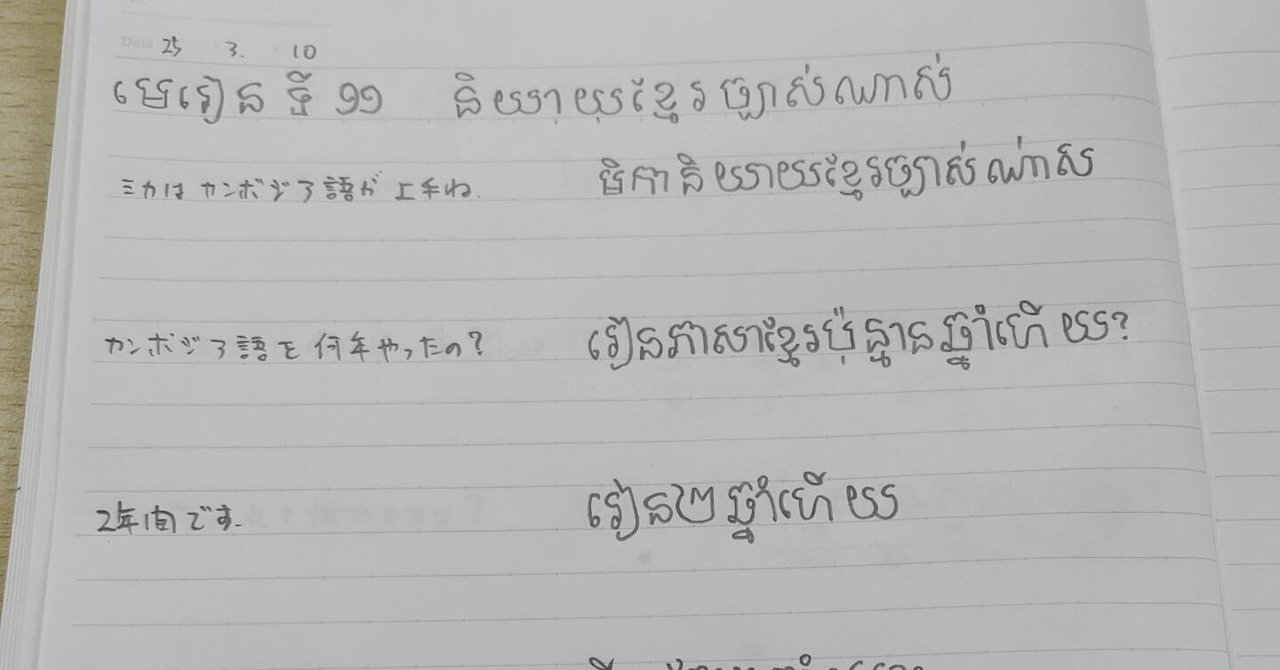 Date 25 3. 10
មេរៀនទី ១១ និយាយខ្មែរច្បាស់ណាស់
ミカは カンボジア語が上手ね. មិកានិយាយខ្មែរច្បាស់ណាស់
カンボジア語を何年やったの? រៀនភាសាខ្មែរប៉ុន្មានឆ្នាំហើយ?
2年間です. រៀន២ឆ្នាំហើយ